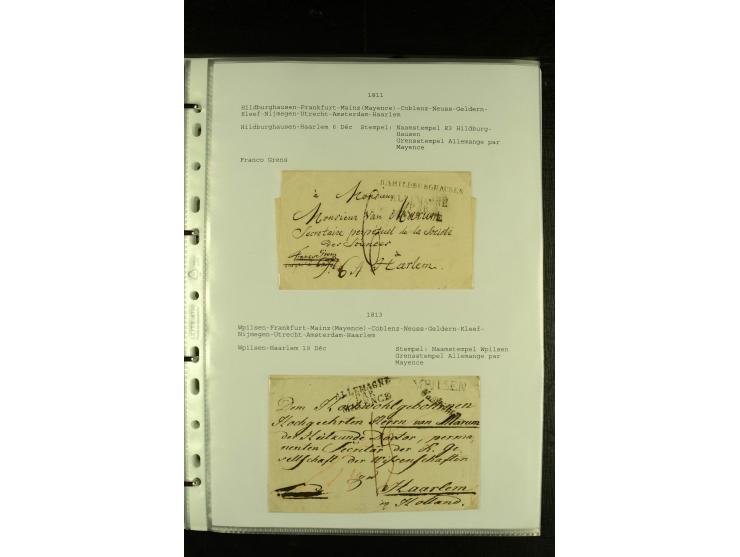 1811
Hildburghausen-Frankfurt-Mainz(Mayence)-Coblenz-Neuss-Geldern-
Kleef-Nijmegen-Utrecht-Amsterdam-Haarlem
Hildburghausen-Haarlem 6 Déc Stempel: Naamstempel R3 Hildburg-
Hausen
Grensstempel Allemange par
Mayence
Franco Grens
R.3.HILDBURGHAUSEN
ALLEMAGNE
à Monsieur
Monsieur Van Marum
Secretaire perpetuel de la Societé
des Sciences
à
Harlem.
1813
Wpilsen-Frankfurt-Mainz(Mayence)-Coblenz-Neuss-Geldern-Kleef-
Nijmegen-Utrecht-Amsterdam-Haarlem
Wpilsen-Haarlem 19 Déc Stempel: Naamstempel Wpilsen
Grensstempel Allemange par
Mayence
ALLEMAGNE
PAR
MAYENCE
WPILSEN
Dem Hochwohlgebohrnen
Hochgeehrten Herrn van Marum
der Heilkunde Doctor, perma-
nenten Secretär der K. Ge-
sellschaft der Wissenschaften
Haarlem
in Holland.